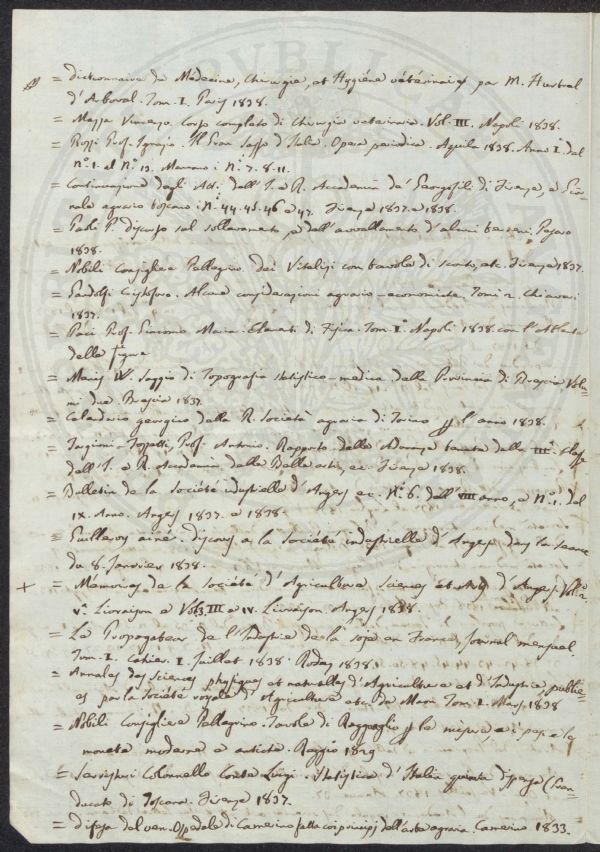 = Dictionnaire de Médecine, Chirurgie, et Hygiène vétérinaire par M. Hurtrel
d'Arboval. Tom. I. Paris 1838.
= Mazza Vincenzo. Corso completo di Chirurgia veterinaria. Vol. III. Napoli 1838.
= Rozzi Prof. Ignazio. Il Gran Sasso d'Italia. Opera periodica. Aquila 1838. Anno I. dal
n.° 1. al n.° 13. Mancano i n.i 7. 8. 11.
= Continuazione degli Atti dell'I. e R. Accademia de' Georgofili di Firenze, e Gior-
nale agrario toscano i n.i 44. 45. 46 e 47. Firenze 1837. e 1838.
= Paoli P. discorso sul sollevamento e dell'avvallamento d'alcuni terreni. Pesaro
1838.
= Nobili Consigliere Pellegrino. Dei Vitalizj con tavole di sconto, etc. Firenze 1837.
= Gandolfi Cristoforo. Alcune considerazioni agrario-economiche. Tomi 2. Chiavari
1837.
= Paci Prof. Giacomo Maria. Elementi di Fisica. Tom. I.° Napoli 1838. con l'Atlante
delle figure
= Saggio di Topografia statistico-medica della Provincia di Brescia Volu-
mi due. Brescia 1837.
= Calendario georgico della R. Società agraria di Torino l'anno 1838.
= Targioni-Tozzetti, Prof. Antonio. Rapporto delle Adunanze tenute dalla III.a classe
dell'I. e R. Accademia delle Belle arti, ec. Firenze 1838.
= Bulletin de la Société industrielle d'Angers ec. N.° 6. dell'VIII anno, e N.° 1. del
IX. Anno. Angers 1837. e 1838.
= Guillory ainé. discours a la Société industrielle d'Angers dans la seance
du 8. Janvier 1838.
+ = Mémoires de la Société d'Agriculture Sciences et Arts d'Angers. Vol. 2.
V.e Livraison e Vol. 3. III e IV. Livraison. Angers 1838.
= Le Propagateur de l'Industrie de la soie en France, Journal mensuel
Tom. I. Cahier. I. Juillet 1838. Rodez 1838.
= Annales des Sciences physiques et naturelles d'Agriculture et d'Industrie, publié-
es par la Société royale d'Agriculture etc. de Tom. I. Mars 1838
= Nobili Consigliere Pellegrino. Tavole di Ragguaglio le misure, e i pesi e la
moneta moderna e antica. Reggio 1829
= Serristori Colonnello Conte Luigi. Statistica d'Italia quinta dispensa (Gran-
ducato di Toscana. Firenze 1837.
= difesa del ven. Ospedale di Camerino fatta coi principj dell'arte agraria. Camerino 1833.